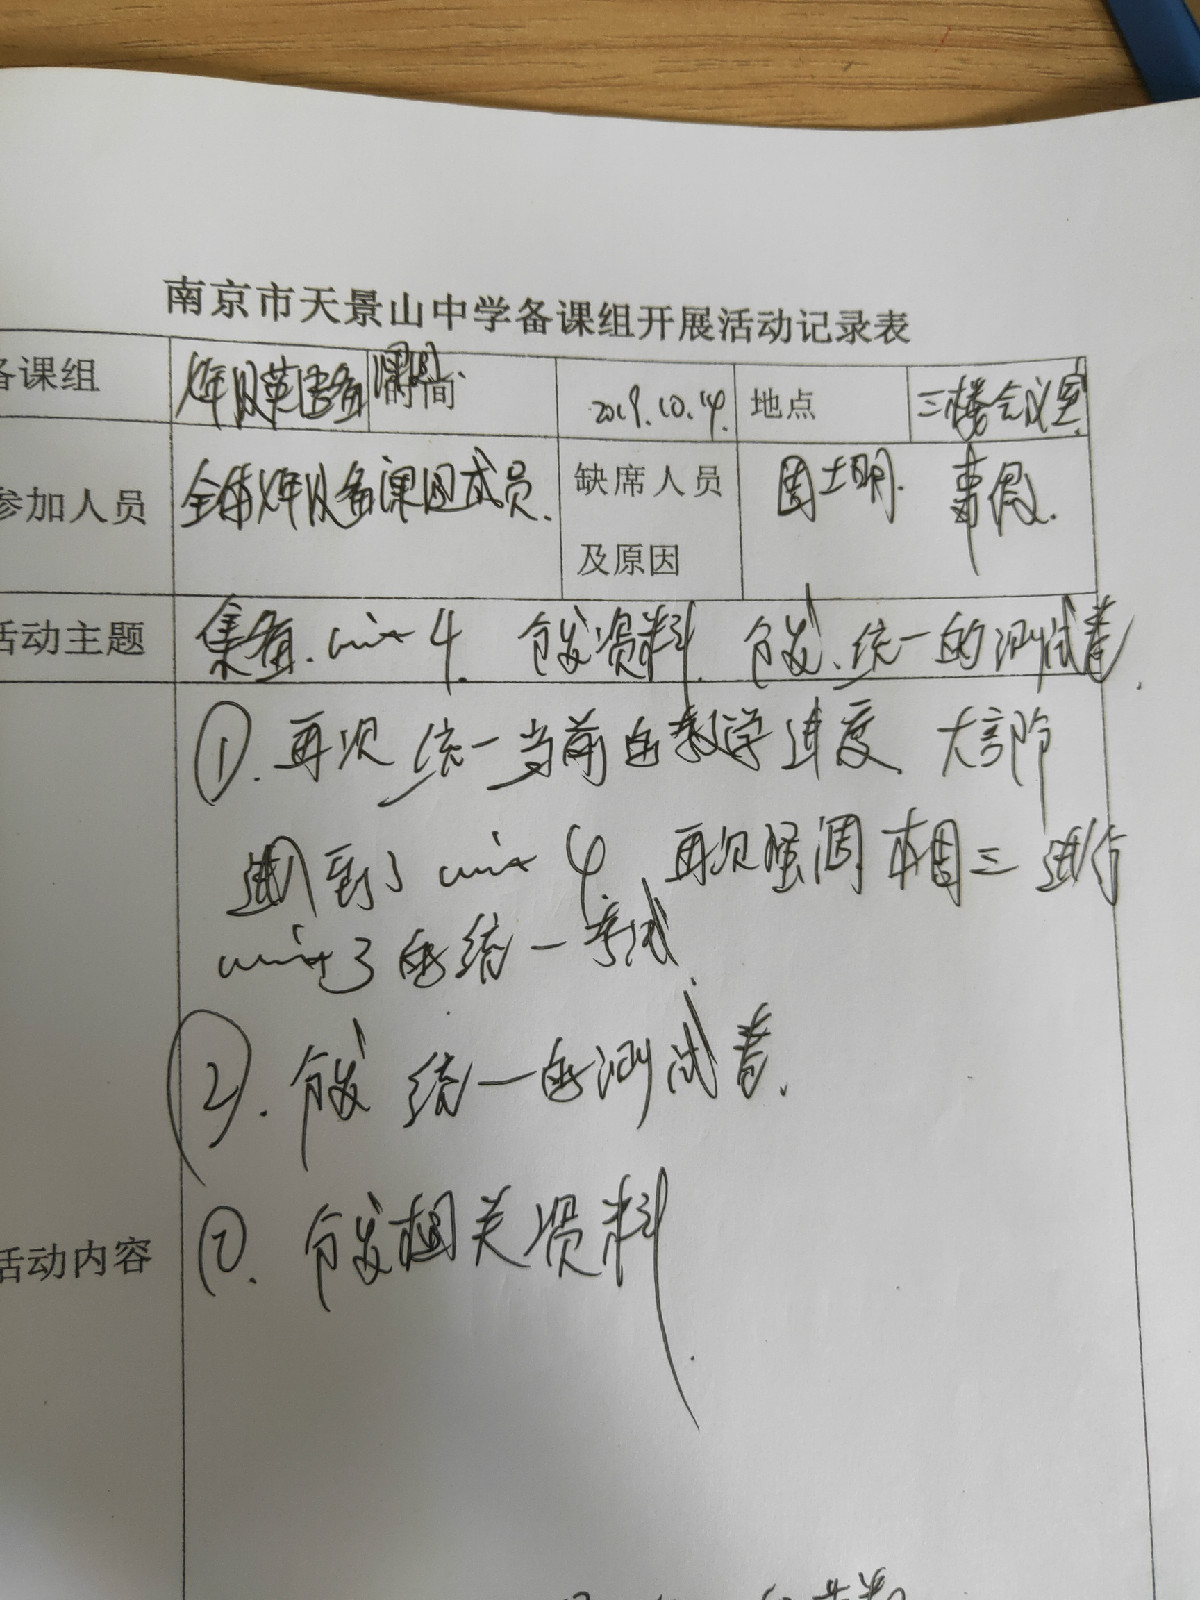 南京市天景山中学备课组开展活动记录表
备课组 年级英语备课组 时间 2019.10.14. 地点 三楼会议室
参加人员 全体年级备课组成员. 缺席人员及原因 周士明. 事假.
活动主题 集备. unit 4. 分发资料. 分发.统一的测试卷.
①. 再次统一当前的教学进度. 大部
进到了 unit 4. 再次强调本周三进行
unit 3 的统一考试.
②. 分发统一的测试卷.
分发相关资料.
活动内容